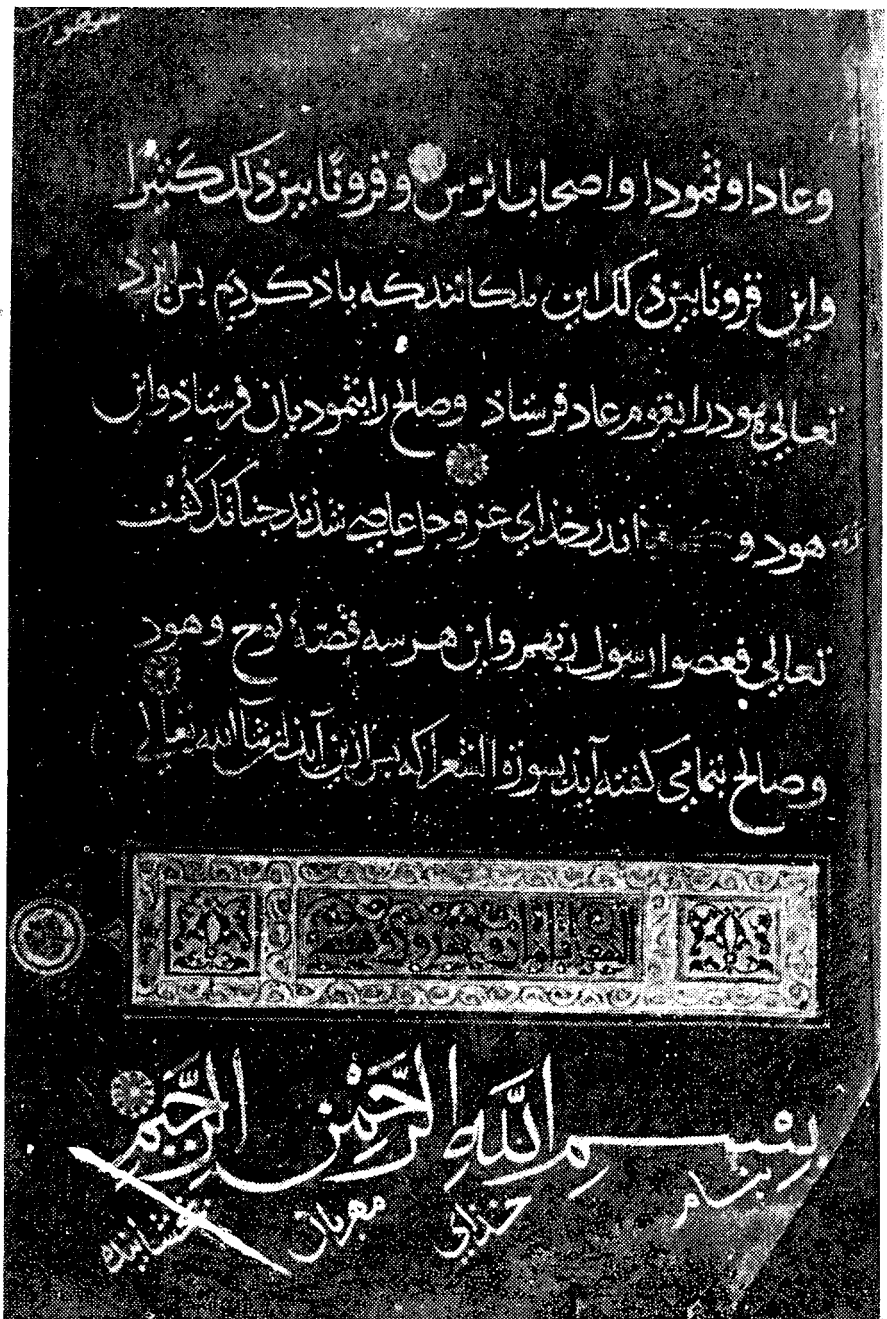 وعادا وثمودا واصحاب الرّس وقرونًا بين ذلك كَثيرًا
واين قرونا بين ذلك اين ملكانند كه ياذ كرديم پس ايزد
تعالى هود را بقوم عاد فرستاذ وصالح را بثموديان فرستاذ واين
هود و اندر خداي عز وجل عاصى شذند جنانك كفت
تعالي فعصوا رسول ربهم واين هر سه قصّهٔ نوح وهود
وصالح بتمامي كفته آيذ بسورة الشعرا كه پس ازين آيذ ان شآ الله تعالى
بِسْمِ اللَّهِ الرَّحْمٰنِ الرَّحِيمِ
بنام خذاي مهربان بخشاينده